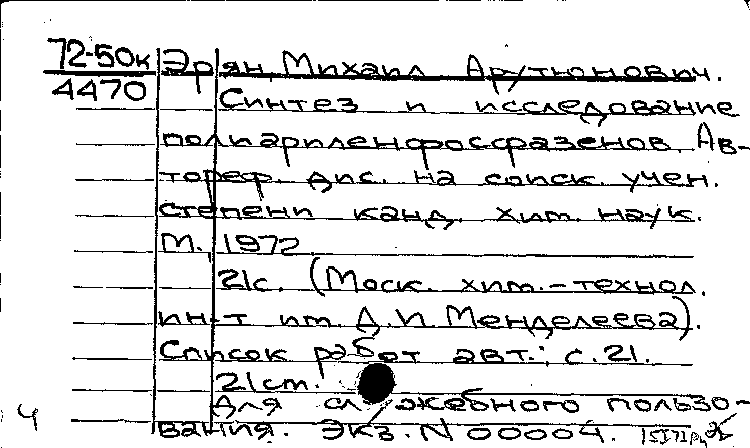 72-50к Эрян, Михаил Арутюнович.
4470 Синтез и исследование
полиариленфосфразенов. Ав-
тореф. дис. на соиск. учен.
степени канд. хим. наук.
М., 1972
21с. (Моск. хим.-технол.
ин-т им. Д.И. Менделеева).
Список работ авт.: с.21.
21см.
Для служебного пользо-
Ч вания. Экз. N 00004.